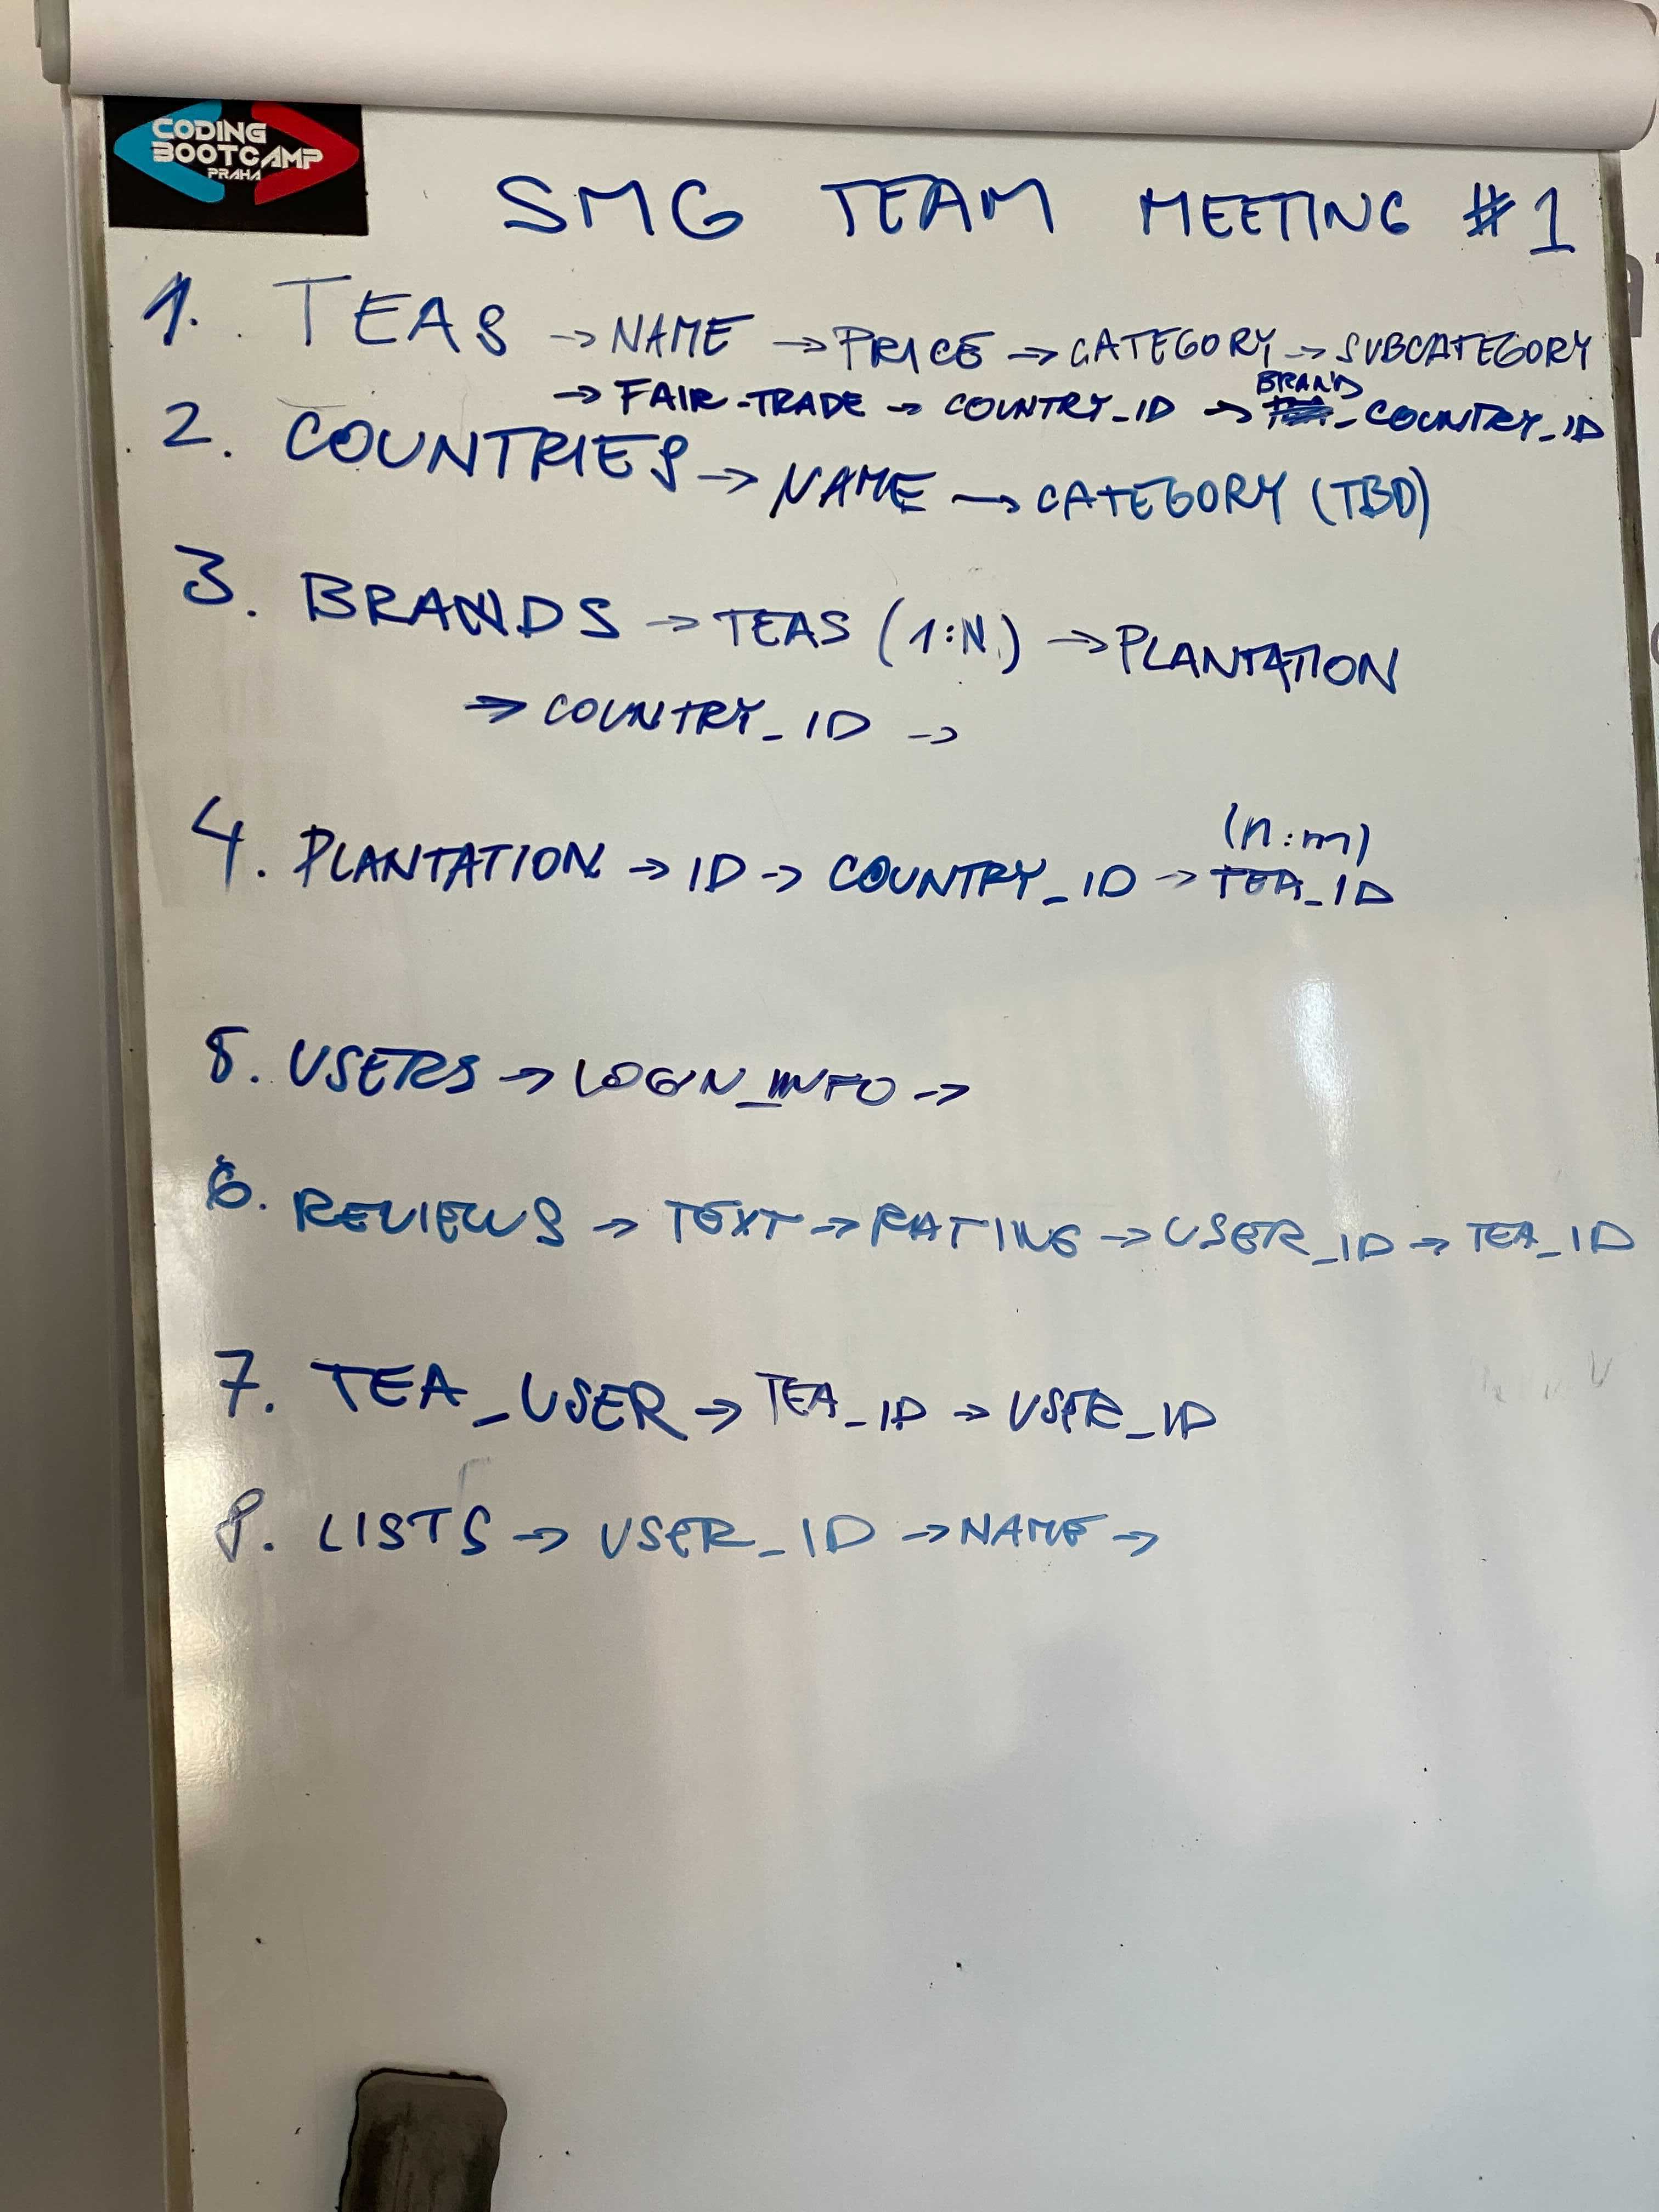 CODING
BOOTCAMP
PRAHA
SMG TEAM MEETING #1
1. TEAS → NAME → PRICE → CATEGORY → SUBCATEGORY
BRAND
→ FAIR-TRADE → COUNTRY_ID → _COUNTRY_ID
2. COUNTRIES → NAME → CATEGORY (TBD)
3. BRANDS → TEAS (1:N) → PLANTATION
→ COUNTRY_ID →
(n:m)
4. PLANTATION → ID → COUNTRY_ID → TEA_ID
5. USERS → LOGIN_INFO →
6. REVIEWS → TEXT → RATING → USER_ID → TEA_ID
7. TEA_USER → TEA_ID → USER_ID
8. LISTS → USER_ID → NAME →